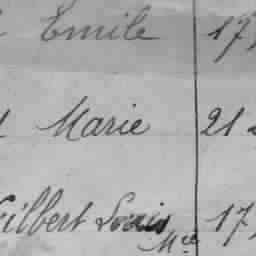 Emile 17
Marie 21
Gilbert Louis 17
Mce